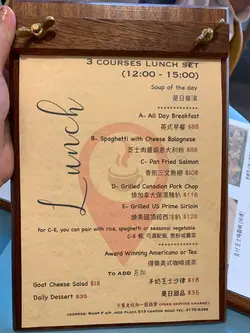 3 COURSES LUNCH SET
(12:00 - 15:00)
Lunch
Soup of the day
是日餐湯
A- All Day Breakfast
英式早餐 $88
B- Spaghetti with Cheese Bolognese
芝士肉醬意大利粉 $88
C- Pan Fried Salmon
香煎三文魚柳 $108
D- Grilled Canadian Pork Chop
燒加拿大豬扒 $118
E- Grilled US Prime Sirloin
燒美國頂級西冷扒 $128
For C-E, you can pair with rice, spaghetti or seasonal vegetable
C-E 餐, 可選配飯, 意粉或蕃菜
Award Winning Americano or Tea
得獎美式咖啡或茶
To ADD 另加
Goat Cheese Salad $18 羊奶芝士沙律 $18
Daily Dessert $35 是日甜品 $35
ADDRESS: SHOP F G/F JADE PLAZA, 513 CANTON ROAD